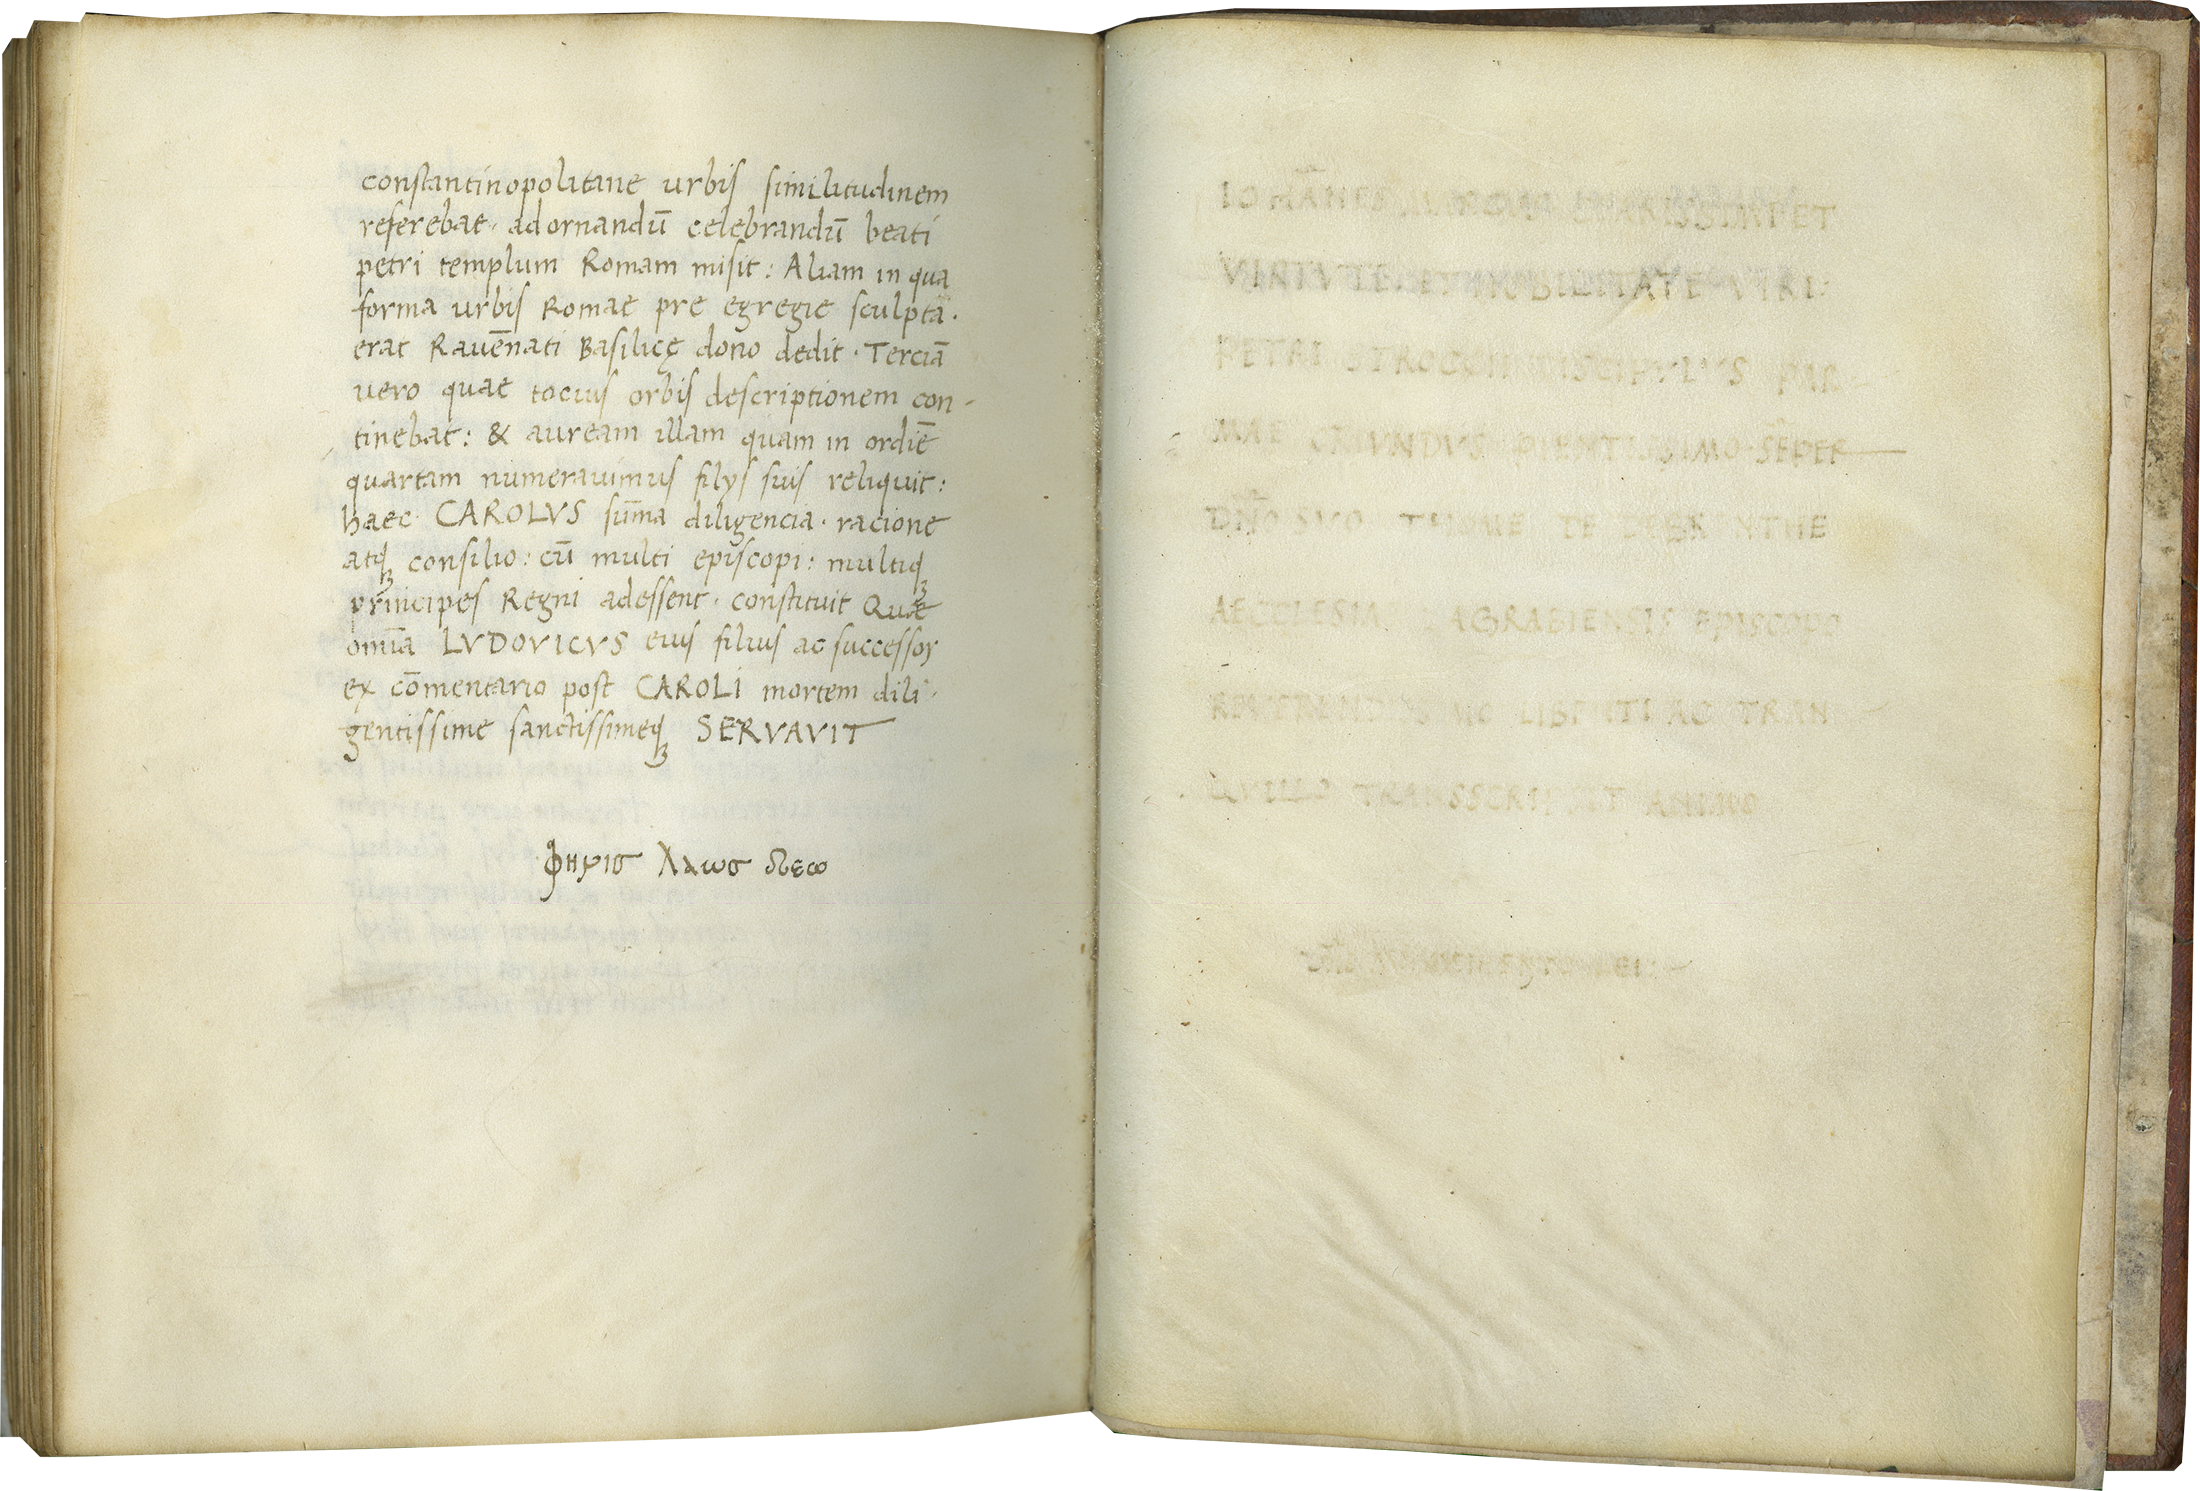 constantinopolitane urbis similitudinem
referebat· adornandū celebrandū beati
petri templum Romam misit: Aliam in qua
forma urbis Romae pre egregie sculpta·
erat Ravēnati Basilicę dono dedit· Terciā
vero quae tocius orbis descriptionem con-
tinebat: & auream illam quam in ordīe
quartam numeravimus filys suis reliquit:
haec CAROLVS sūma diligencia· racione
atqꝫ consilio: cū multi episcopi: multiqꝫ
principes Regni adessent· constituit Quae
omīa LVDOVICVS eius filius ac successor
ex cōmentario post CAROLI mortem dili·
gentissime sanctissimeqꝫ SERVAVIT
φηνισ λαωσ δεω
IOHĀNES CLARISSIMI ET
VIRTVTE ET NOBILITATE VIRI:
PETRI STROCCII DISCIPVLVS PAR-
MAE ORIVNDVS PIENTISSIMO SĒPER
DN̄O SVO
AECCLESIA AGRABIENSIS EPISCOPO
LIBENTI AC TRAN-
QVILLO TRANSSCRIPSIT ANIMO